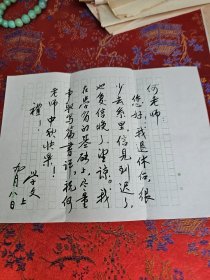 何老师
您好，我退休后，很
少去系里，信见到迟了，
也复信晚了，望谅。我
在君有的基础上，尽量
争取写篇书评，祝何
老师中秋快乐！
礼！
学文上
九月八日